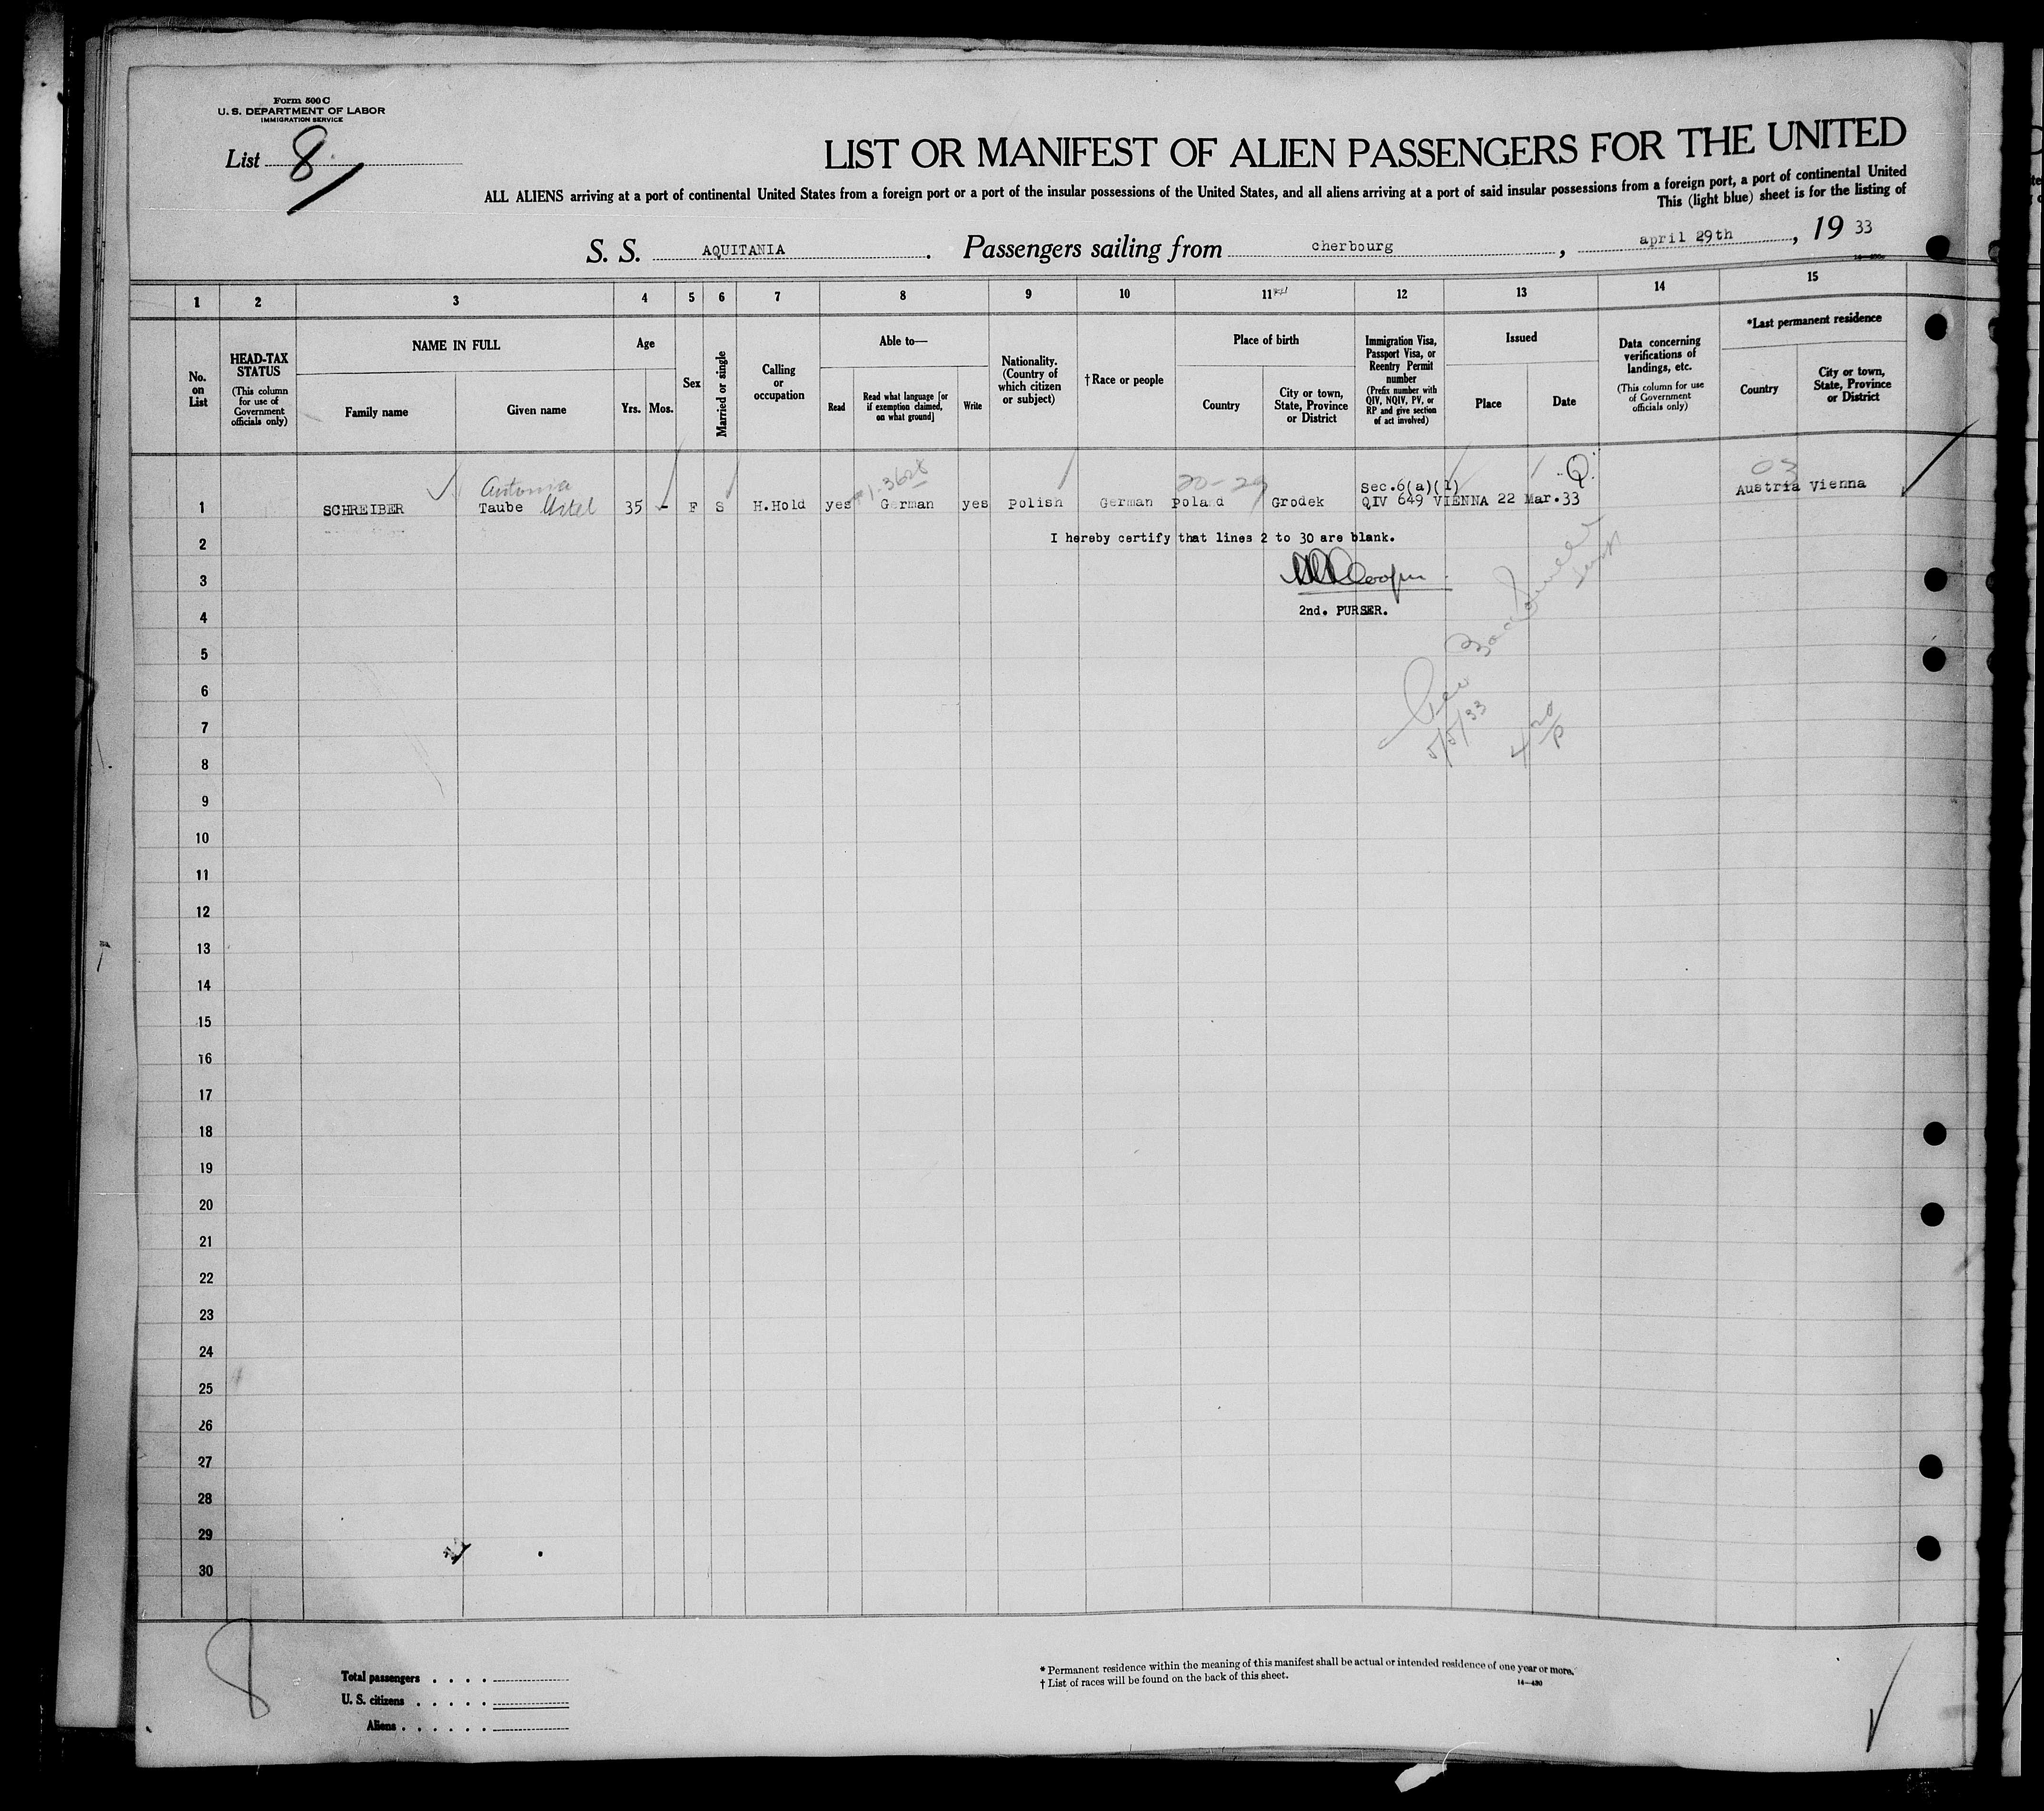 Form 500 C
U. S. DEPARTMENT OF LABOR
IMMIGRATION SERVICE
List 8
LIST OR MANIFEST OF ALIEN PASSENGERS FOR THE UNITED
ALL ALIENS arriving at a port of continental United States from a foreign port or a port of the insular possessions of the United States, and all aliens arriving at a port of said insular possessions from a foreign port, a port of continental United
This (light blue) sheet is for the listing of
S. S. AQUITANIA. Passengers sailing from cherbourg, april 29th, 19 33
1 2 3 4 5 6 7 8 9 10 11 12 13 14 15
No. on List
HEAD-TAX STATUS
(This column for use of Government officials only)
NAME IN FULL
Family name
Given name
Age
Yrs. Mos.
Sex
Married or single
Calling or occupation
Able to—
Read
Read what language [or if exemption claimed, on what ground]
Write
Nationality. (Country of which citizen or subject)
†Race or people
Place of birth
Country
City or town, State, Province or District
Immigration Visa, Passport Visa, or Reentry Permit number
(Prefix number with QIV, NQIV, PV, or RP and give section of act involved)
Issued
Place
Date
Data concerning verifications of landings, etc.
(This column for use of Government officials only)
*Last permanent residence
Country
City or town, State, Province or District
20-29 Sec.6(a)(1) Q. 03
1 SCHREIBER Taube 35 - F S H.Hold yes German yes Polish German Poland Grodek QIV 649 VIENNA 22 Mar.33 Austria Vienna
2 I hereby certify that lines 2 to 30 are blank.
3
4 2nd. PURSER.
5
6
7 5/5/33
8
9
10
11
12
13
14
15
16
17
18
19
20
21
22
23
24
25
26
27
28
29
30
8
Total passengers . . . .
U. S. citizens . . . . .
Aliens . . . . . .
* Permanent residence within the meaning of this manifest shall be actual or intended residence of one year or more.
† List of races will be found on the back of this sheet.
14—430